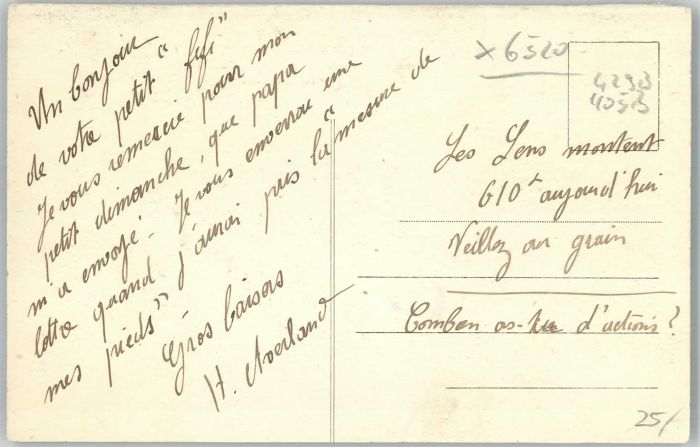 Un bonjour
de votre petit "fifi"
Je vous remercie pour mon
petit dimanche, que papa
m'a envoyé. Je vous enverrai une
lettre quand j'aurai pris la "mesure de
mes pieds"
Gros baisers
H.
x 6520
4293
4053
Les Lens montent
610 aujourd'hui
Veillez au grain
Comben as-tu d'actions?
25/